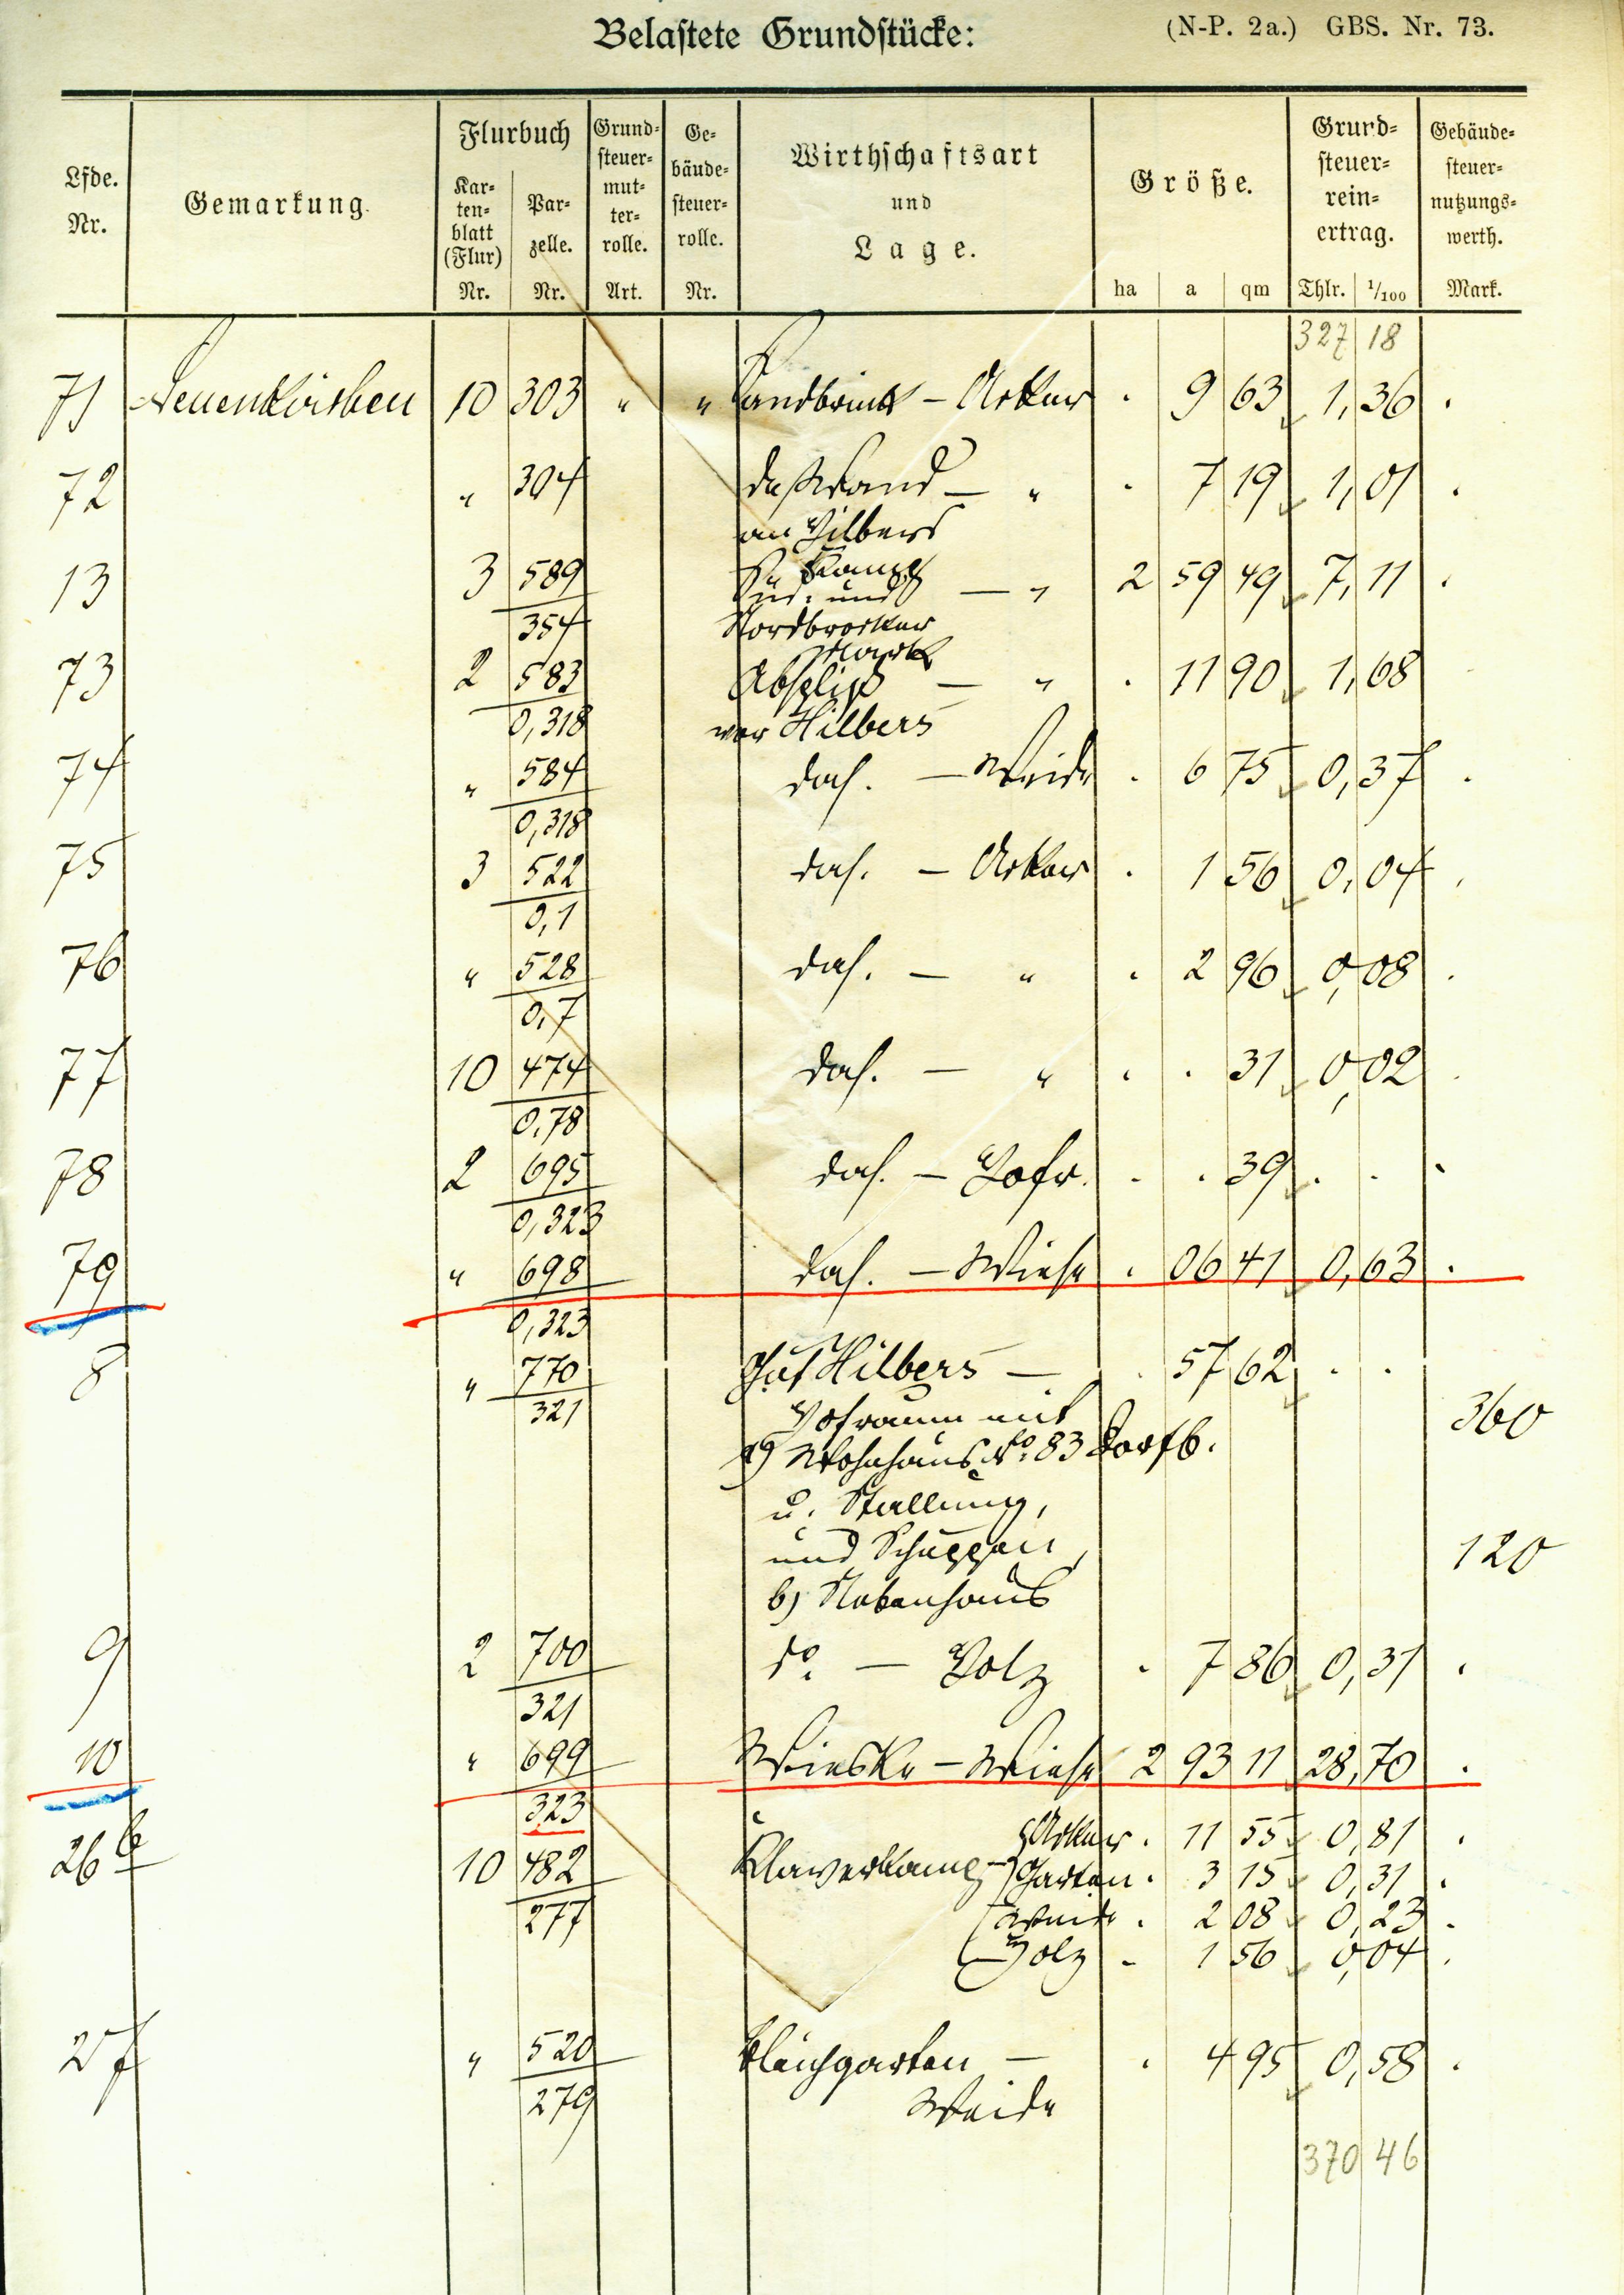 Belastete Grundstücke: (N-P. 2a.) GBS. Nr. 73.
Lfde. Nr. Gemarkung. Flurbuch Kartenblatt (Flur) Nr. Parzelle. Nr. Grundsteuermutterrolle. Art. Gebäudesteuerrolle. Nr. Wirthschaftsart und Lage. Größe. ha a qm Grundsteuerreinertrag. Thlr. 1/100 Gebäudesteuernutzungswerth. Mark.
327 18
71 Neuenkirchen 10 303 " " Sandbrink – Acker . 9 63 1,36 .
72 " 304 — " . 7 19 1,01 .
an Hilbers
Kamp
13 3 589/354 Süd- und — " 2 59 49 7,11 .
Nordbrocker
Mark
73 2 583/0,318 Absplis — " . 11 90 1,68
vor Hilbers
74 " 584/0,318 das. — Weide . 6 75 0,37 .
75 3 522/0,1 das. — Acker . 1 56 0,04 .
76 " 528/0,7 das. — " . 2 96 0,08 .
77 10 474/0,78 das. — " . . 31 0,02 .
78 2 695/0,323 das. — Hofr. . . 39 . . .
79 " 698/0,323 das. — Wiese . 06 41 0,63 .
8 " 770/321 Gut Hilbers — . 57 62 . .
Hofraum mit 360
a) Wohnhaus No. 83 Dorfb.
u. Stallung,
und Schuppen, 120
b) Nebenhaus
9 2 700/321 do. — Holz . 7 86 0,31 .
10 " 699/323 Wieske – Wiese 2 93 11 28,70 .
26 b 10 482/277 Klaverkamp – Acker . 11 55 0,81 .
Garten . 3 15 0,31 .
Weide . 2 08 0,23 .
Holz . 1 56 0,04 .
27 " 520/279 Bleichgarten — . 4 95 0,58 .
Weide
370 46